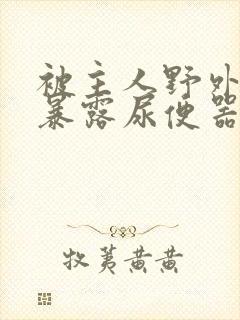 被主人野外
暴露尿便器
牧荑黄黄